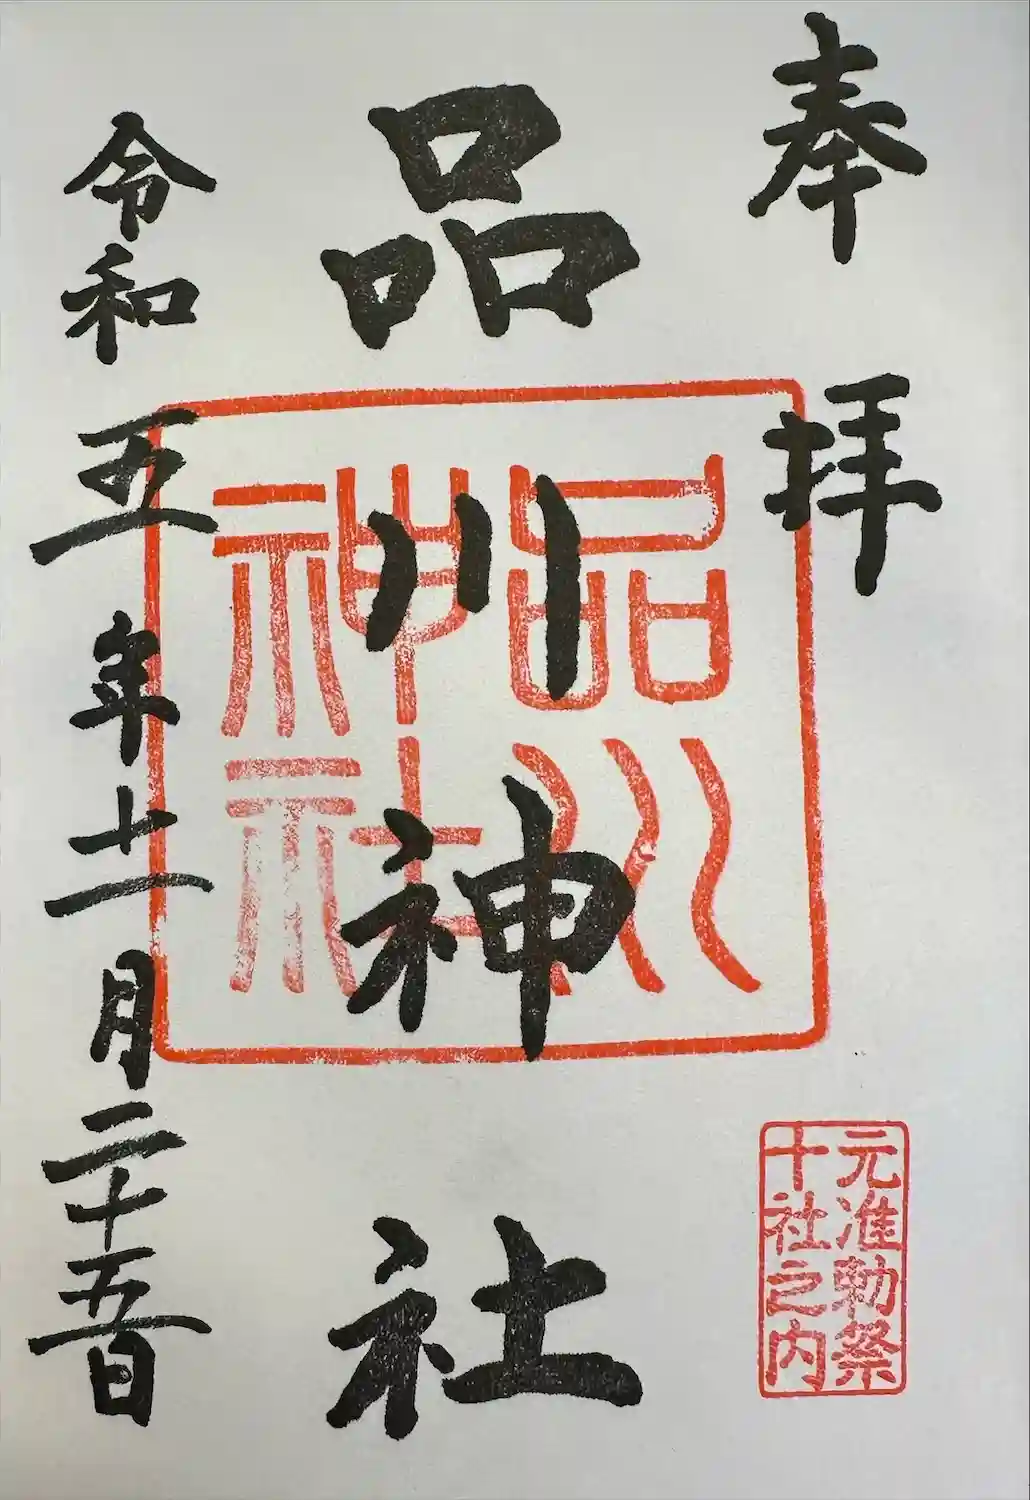 奉拝
品川神社
品川
神社
元准勅祭
十社之内
令和五年十一月二十五日